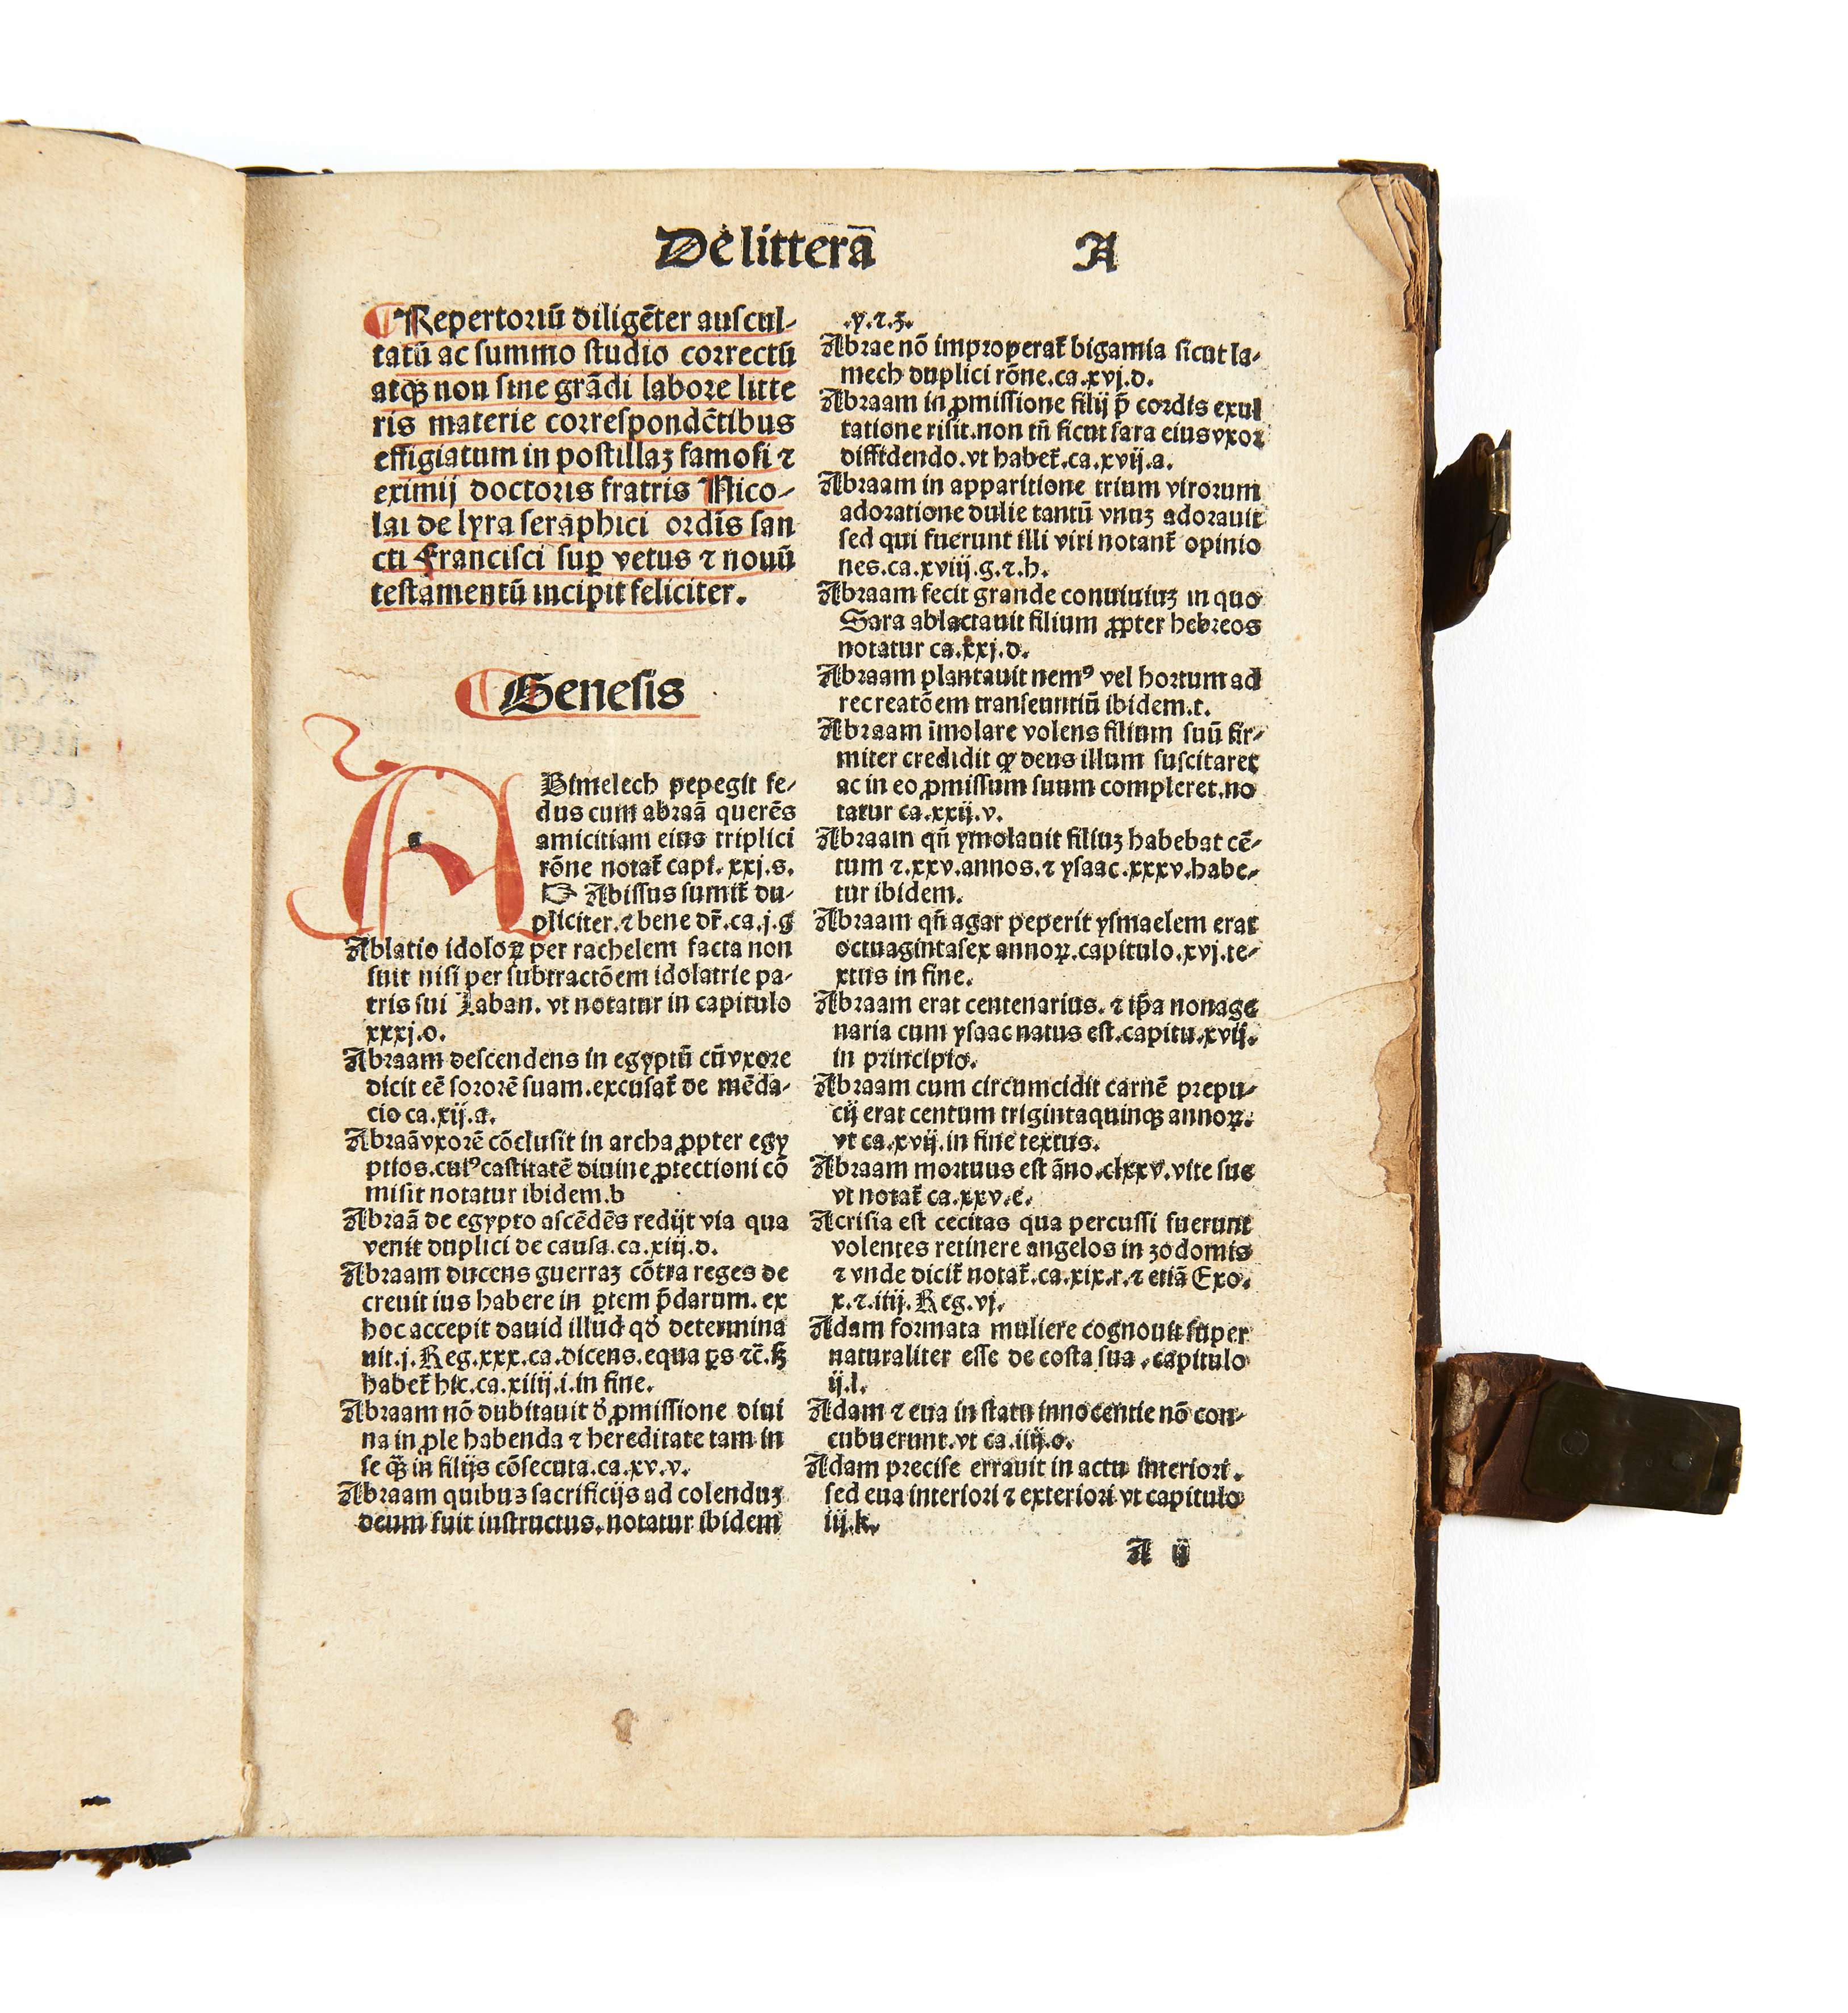 De litterā A
Repertoriū diligēter auscul-
tatū ac summo studio correctū
atqꝫ non sine grādi labore litte
ris materie correspondētibus
effigiatum in postillaꝫ famosi ⁊
eximij doctoris fratris Nico-
lai de lyra seraphici ordīs san
cti Francisci suꝑ vetus ⁊ nouū
testamentū incipit feliciter.
Genesis
ABimelech pepegit fe-
dus cum abraā querēs
amicitiam eius triplici
rōne notat̄ capl. xxj.s.
☞ Abissus sumit̄ du-
pliciter.⁊ bene dr̄.ca.j.g
Ablatio idoloꝝ per rachelem facta non
fuit nisi per subtractōem idolatrie pa-
tris sui Laban. vt notatur in capitulo
xxxj.o.
Abraam descendens in egyptū cū vxore
dicit eē sororē suam.excusat̄ de mēda-
cio ca.xij.a.
Abraā vxorē cōclusit in archa ꝓpter egy
ptios.cuiꝰ castitatē diuine ꝓtectioni cō
misit notatur ibidem.b
Abraā de egypto ascēdēs redijt via qua
venit duplici de causa.ca.xiij.d.
Abraam ducens guerraꝫ cōtra reges de
creuit ius habere in ꝑtem p̄darum. ex
hoc accepit dauid illud qd̄ determina
uit.j.Reg.xxx.ca.dicens.equa ꝑs ⁊c̄.ꝸ
habet̄ hic.ca.xiiij.i.in fine.
Abraam nō dubitauit d̄ ꝓmissione diui
na in ꝓle habenda ⁊ hereditate tam in
se qꝫ̄ in filijs cōsecuta.ca.xv.v.
Abraam quibuꝫ sacrificijs ad colenduꝫ
deum fuit instructus.notatur ibidem
.y.⁊.ꝫ.
Abrae nō improperat̄ bigamia sicut la-
mech duplici rōne.ca.xvj.d.
Abraam in ꝓmissione filij p̄ cordis exul
tatione risit.non tn̄ sicut sara eius vxor
diffidendo.vt habet̄.ca.xvij.a.
Abraam in apparitione trium virorum
adoratione dulie tantū vnuꝫ adorauit
sed qui fuerunt illi viri notant̄ opinio
nes.ca.xviij.g.⁊.h.
Abraam fecit grande conuiuiuꝫ in quo
Sara ablactauit filium ꝓpter hebreos
notatur ca.xxj.d.
Abraam plantauit nemꝰ vel hortum ad
recreatōem transeuntiū ibidem.t.
Abraam īmolare volens filium suū fir-
miter credidit ꝙ deus illum suscitaret
ac in eo ꝓmissum suum compleret.no
tatur ca.xxij.v.
Abraam qn̄ ymolauit filiuꝫ habebat cē-
tum ⁊.xxv.annos.⁊ ysaac.xxxv.habe-
tur ibidem.
Abraam qn̄ agar peperit ysmaelem erat
octuagintasex annoꝝ.capitulo.xvj.te-
xtus in fine.
Abraam erat centenarius. ⁊ ip̄a nonage
naria cum ysaac natus est.capitu.xvij.
in principio.
Abraam cum circumcidit carnē prepu-
cij erat centum trigintaquinqꝫ annoꝝ.
vt ca.xvij.in fine textus.
Abraam mortuus est āno.clxxv.vite sue
vt notat̄ ca.xxv.e.
Acrisia est cecitas qua percussi fuerunt
volentes retinere angelos in zodomis
⁊ vnde dicit̄ notat̄.ca.xix.r.⁊ etiā Exo.
x.⁊.iiij.Reg.vj.
Adam formata muliere cognouit super
naturaliter esse de costa sua.capitulo
ij.l.
Adam ⁊ eua in statu innocentie nō con-
cubuerunt.vt ca.iiij.o.
Adam precise errauit in actu interiori.
sed eua interiori ⁊ exteriori vt capitulo
iij.k.
A ij